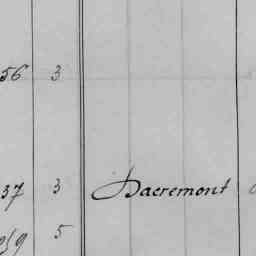 56 3
37 3 Dacremont
59 5